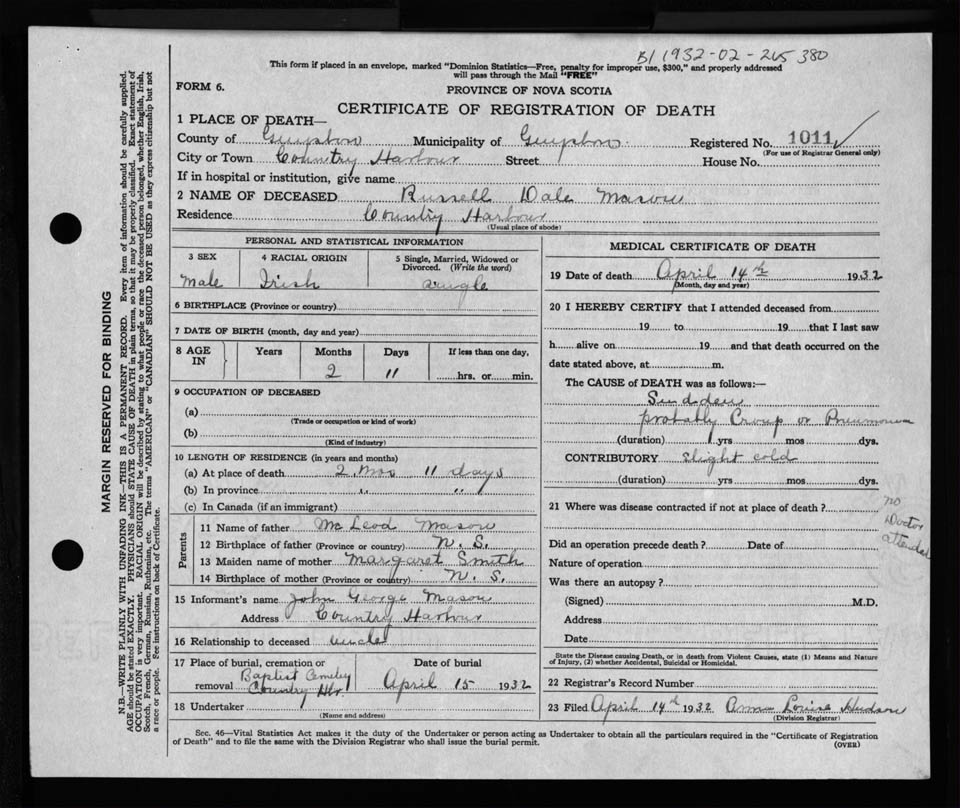 B/ 1932-02-265380
This form if placed in an envelope, marked "Dominion Statistics—Free, penalty for improper use, $300," and properly addressed
will pass through the Mail "FREE"
FORM 6.
PROVINCE OF NOVA SCOTIA
CERTIFICATE OF REGISTRATION OF DEATH
1 PLACE OF DEATH—
County of Guysboro Municipality of Guysboro Registered No. 1011 ✓
(For use of Registrar General only)
City or Town Country Harbour Street House No.
If in hospital or institution, give name
2 NAME OF DECEASED Russell Dale Mason
Residence Country Harbour
(Usual place of abode)
PERSONAL AND STATISTICAL INFORMATION
3 SEX 4 RACIAL ORIGIN 5 Single, Married, Widowed or
Divorced. (Write the word)
Male Irish Single
6 BIRTHPLACE (Province or country)
7 DATE OF BIRTH (month, day and year)
8 AGE IN Years Months Days If less than one day,
2 11 hrs. or min.
9 OCCUPATION OF DECEASED
(a)
(Trade or occupation or kind of work)
(b)
(Kind of industry)
10 LENGTH OF RESIDENCE (in years and months)
(a) At place of death 2 Mos 11 days
(b) In province " "
(c) In Canada (if an immigrant)
Parents
11 Name of father McLeod Mason
12 Birthplace of father (Province or country) N. S.
13 Maiden name of mother Margaret Smith
14 Birthplace of mother (Province or country) N. S.
15 Informant's name John George Mason
Address Country Harbour
16 Relationship to deceased uncle
17 Place of burial, cremation or Date of burial
removal Baptist Cemetery
Country Hbr. April 15 1932
18 Undertaker
(Name and address)
MEDICAL CERTIFICATE OF DEATH
19 Date of death April 14th 1932
(Month, day and year)
20 I HEREBY CERTIFY that I attended deceased from
19 to 19 that I last saw
h alive on 19 and that death occurred on the
date stated above, at m.
The CAUSE of DEATH was as follows:—
Sudden
probably Croup or Pneumonia
(duration) yrs mos dys.
CONTRIBUTORY slight cold
(duration) yrs mos dys.
21 Where was disease contracted if not at place of death?
no
Doctor
attended
Did an operation precede death? Date of
Nature of operation
Was there an autopsy?
(Signed) M.D.
Address
Date
State the Disease causing Death, or in death from Violent Causes, state (1) Means and Nature
of Injury, (2) whether Accidental, Suicidal or Homicidal.
22 Registrar's Record Number
23 Filed April 14th 1932 Anna Louise Hudson
(Division Registrar)
Sec. 46—Vital Statistics Act makes it the duty of the Undertaker or person acting as Undertaker to obtain all the particulars required in the "Certificate of Registration
of Death" and to file the same with the Division Registrar who shall issue the burial permit.
(OVER)
MARGIN RESERVED FOR BINDING
N.B.—WRITE PLAINLY WITH UNFADING INK—THIS IS A PERMANENT RECORD. Every item of information should be carefully supplied.
AGE should be stated EXACTLY. PHYSICIANS should STATE CAUSE OF DEATH in plain terms, so that it may be properly classified. Exact statement of
OCCUPATION is very important. RACIAL ORIGIN will be described by stating to what people or race the deceased person belonged, whether English, Irish,
Scotch, French, German, Russian, Ruthenian, etc. The terms "AMERICAN" or "CANADIAN" SHOULD NOT BE USED as they express citizenship but not
a race or people. See instructions on back of Certificate.